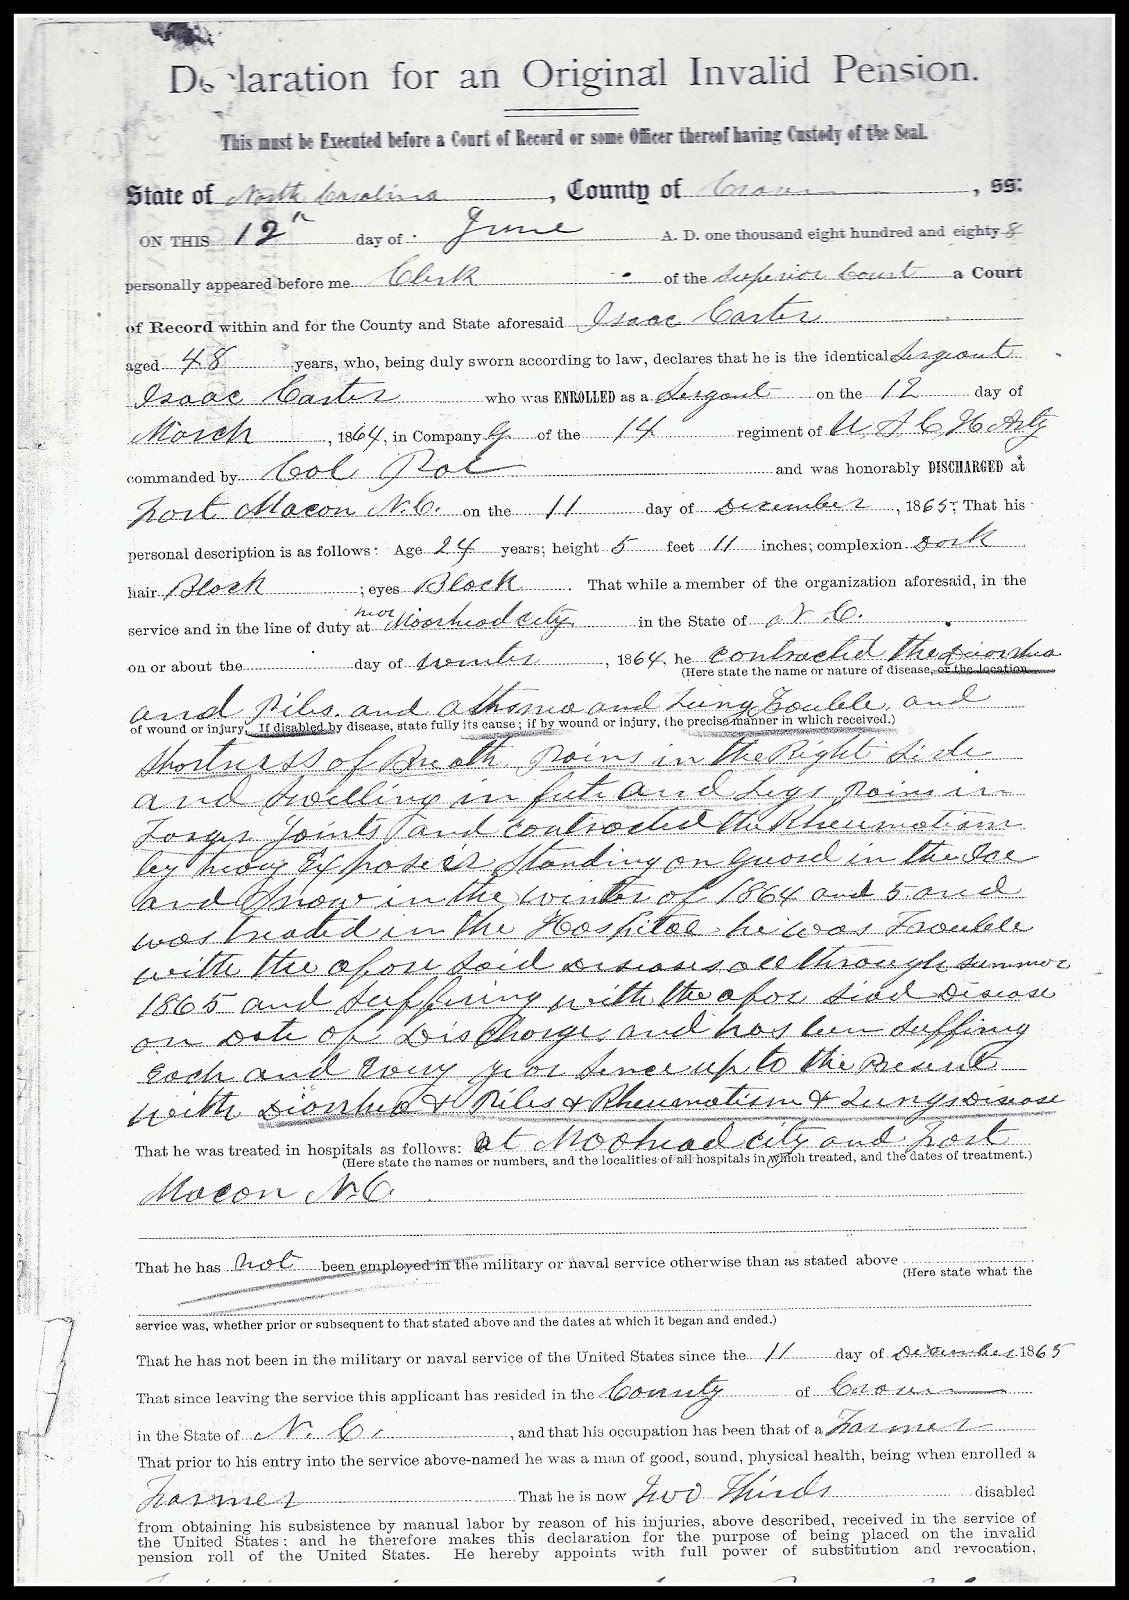 Declaration for an Original Invalid Pension.
This must be Executed before a Court of Record or some Officer thereof having Custody of the Seal.
State of North Carolina, County of Craven, ss:
ON THIS 12" day of June A. D. one thousand eight hundred and eighty-8
personally appeared before me Clerk of the Superior Court a Court
of Record within and for the County and State aforesaid Isaac Carter
aged 48 years, who, being duly sworn according to law, declares that he is the identical Sergeant
Isaac Carter who was ENROLLED as a Sergant on the 12 day of
March, 1864, in Company G of the 14 regiment of U S C H Arty
commanded by Col and was honorably DISCHARGED at
Fort Macon N.C. on the 11 day of December, 1865; That his
personal description is as follows: Age 24 years; height 5 feet 11 inches; complexion Dark
hair Black; eyes Black. That while a member of the organization aforesaid, in the
service and in the line of duty at near Moorhead city in the State of N.C.
on or about the day of winter, 1864, he contracted the Diorrhea
(Here state the name or nature of disease, or the location
and Piles. and athsma and Lung Trouble, and
of wound or injury. If disabled by disease, state fully its cause; if by wound or injury, the precise manner in which received.)
Shortness of Breath. Pains in the Right Side
and Swelling in feet and Legs Pains in
Joints and contracted the Rheumatism
by Standing on guard in the Ice
and Snow in the winter of 1864 and 5 and
was treated in the Hospital he was Trouble
with the afore Said Diseases all through summer
1865 and Suffering with the afor Siad Disease
on Date of Discharge and has ben Suffing
Each and Every year Sence up to the Present
with Diorrhea & Piles & Rheumatism & Lungs Disease
That he was treated in hospitals as follows: at Moohead city and Fort
(Here state the names or numbers, and the localities of all hospitals in which treated, and the dates of treatment.)
Macon N.C.
That he has not been employed in the military or naval service otherwise than as stated above
(Here state what the
service was, whether prior or subsequent to that stated above and the dates at which it began and ended.)
That he has not been in the military or naval service of the United States since the 11 day of December 1865
That since leaving the service this applicant has resided in the County of Craven
in the State of N. C., and that his occupation has been that of a Farmer
That prior to his entry into the service above-named he was a man of good, sound, physical health, being when enrolled a
Farmer That he is now Two Thirds disabled
from obtaining his subsistence by manual labor by reason of his injuries, above described, received in the service of
the United States; and he therefore makes this declaration for the purpose of being placed on the invalid
pension roll of the United States. He hereby appoints with full power of substitution and revocation,